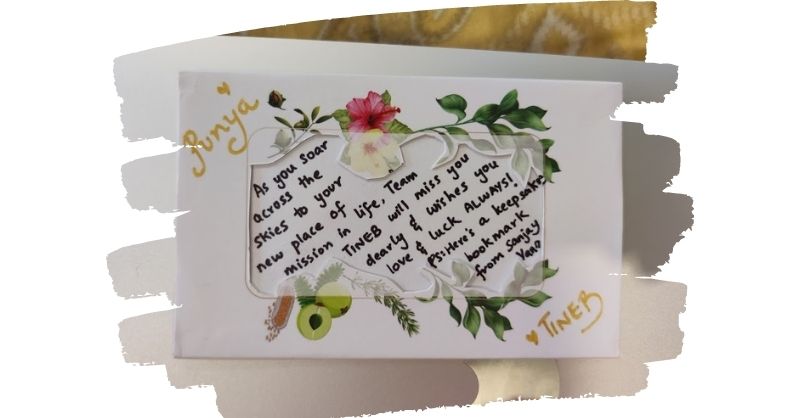 Punya
As you soar
across the
skies to your
new place of
mission in life, Team
TINEB will miss you
dearly & wishes you
love & luck ALWAYS!
PS: Here's a keepsake
bookmark
from Sanjay
TINEB